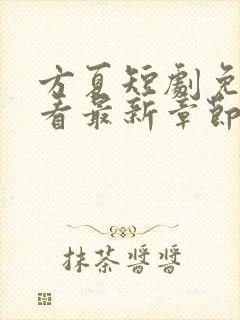 方夏短劇免
看最新章節
抹茶醬醬